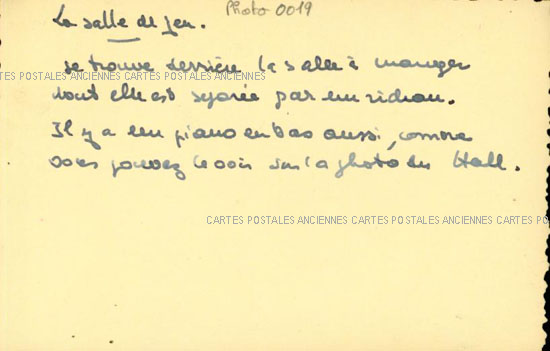 Photo 0019
La salle de jeu.
se trouve derrière la salle à manger
CARTES POSTALES ANCIENNES CARTES POSTALES ANCIENNES CARTES POSTALES ANCIENNES
dont elle est séparée par un rideau.
Il y a un piano en bas aussi, comme
vous pouvez le voir sur la photo du Hall.
CARTES POSTALES ANCIENNES CARTES POSTALES ANCIENNES CARTES POS